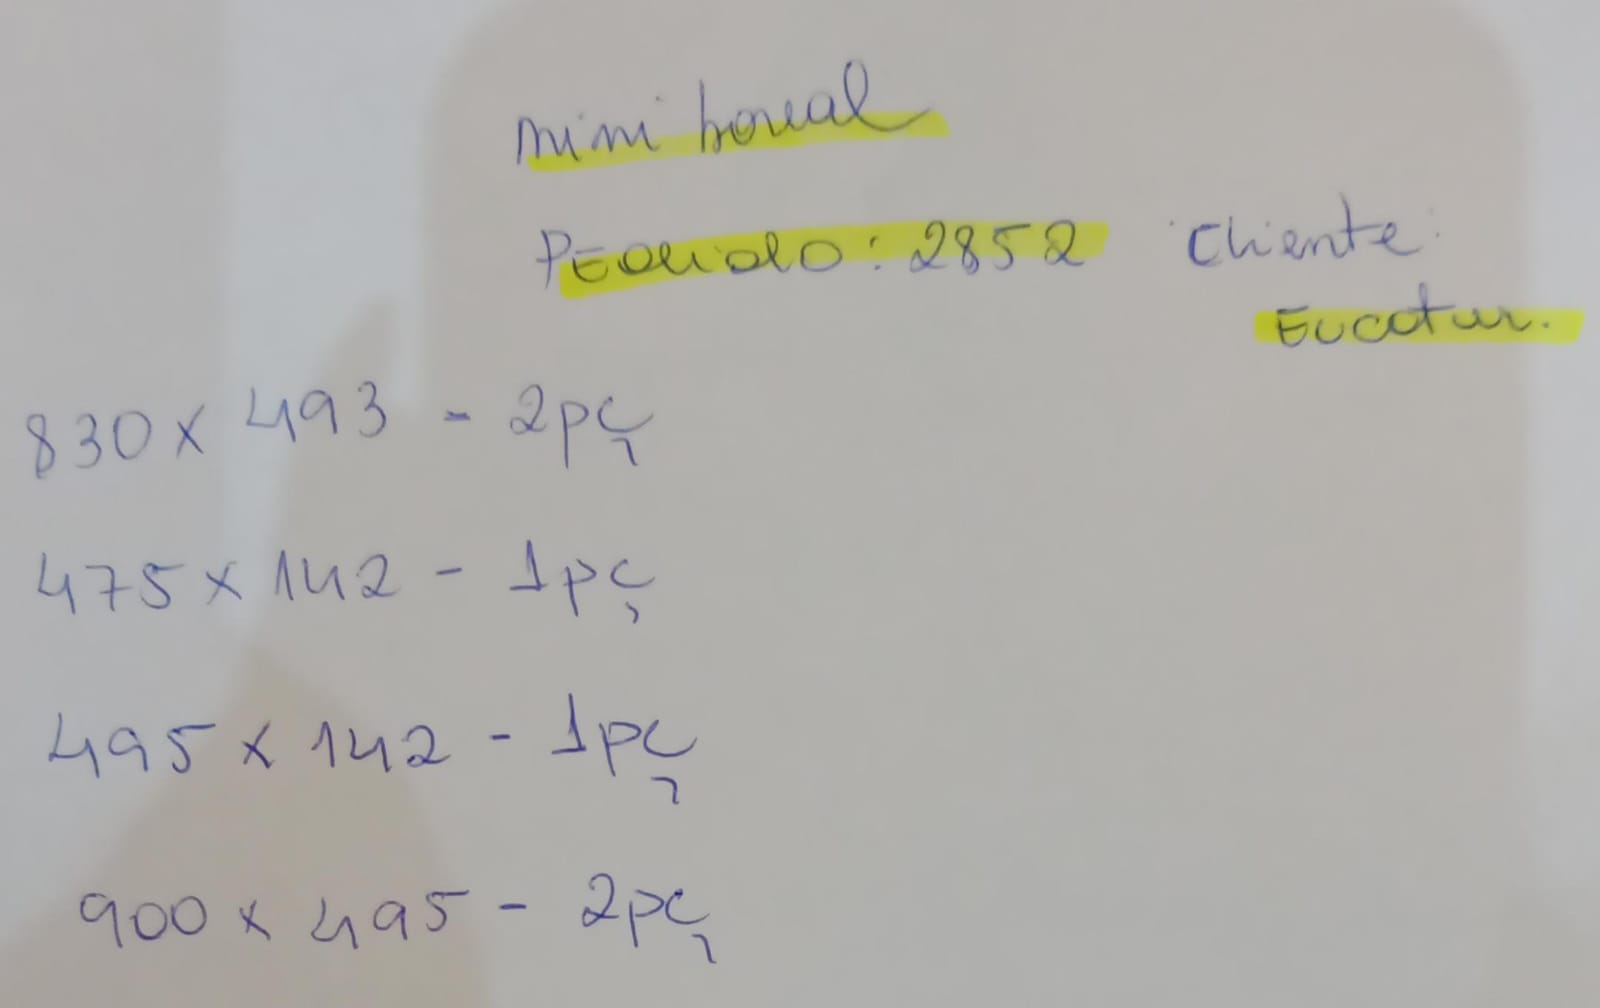 mini boreal
Pedido: 2852 Cliente:
Eucatur.
830 x 493 - 2pç
475 x 142 - 1pç
495 x 142 - 1pç
900 x 495 - 2pç